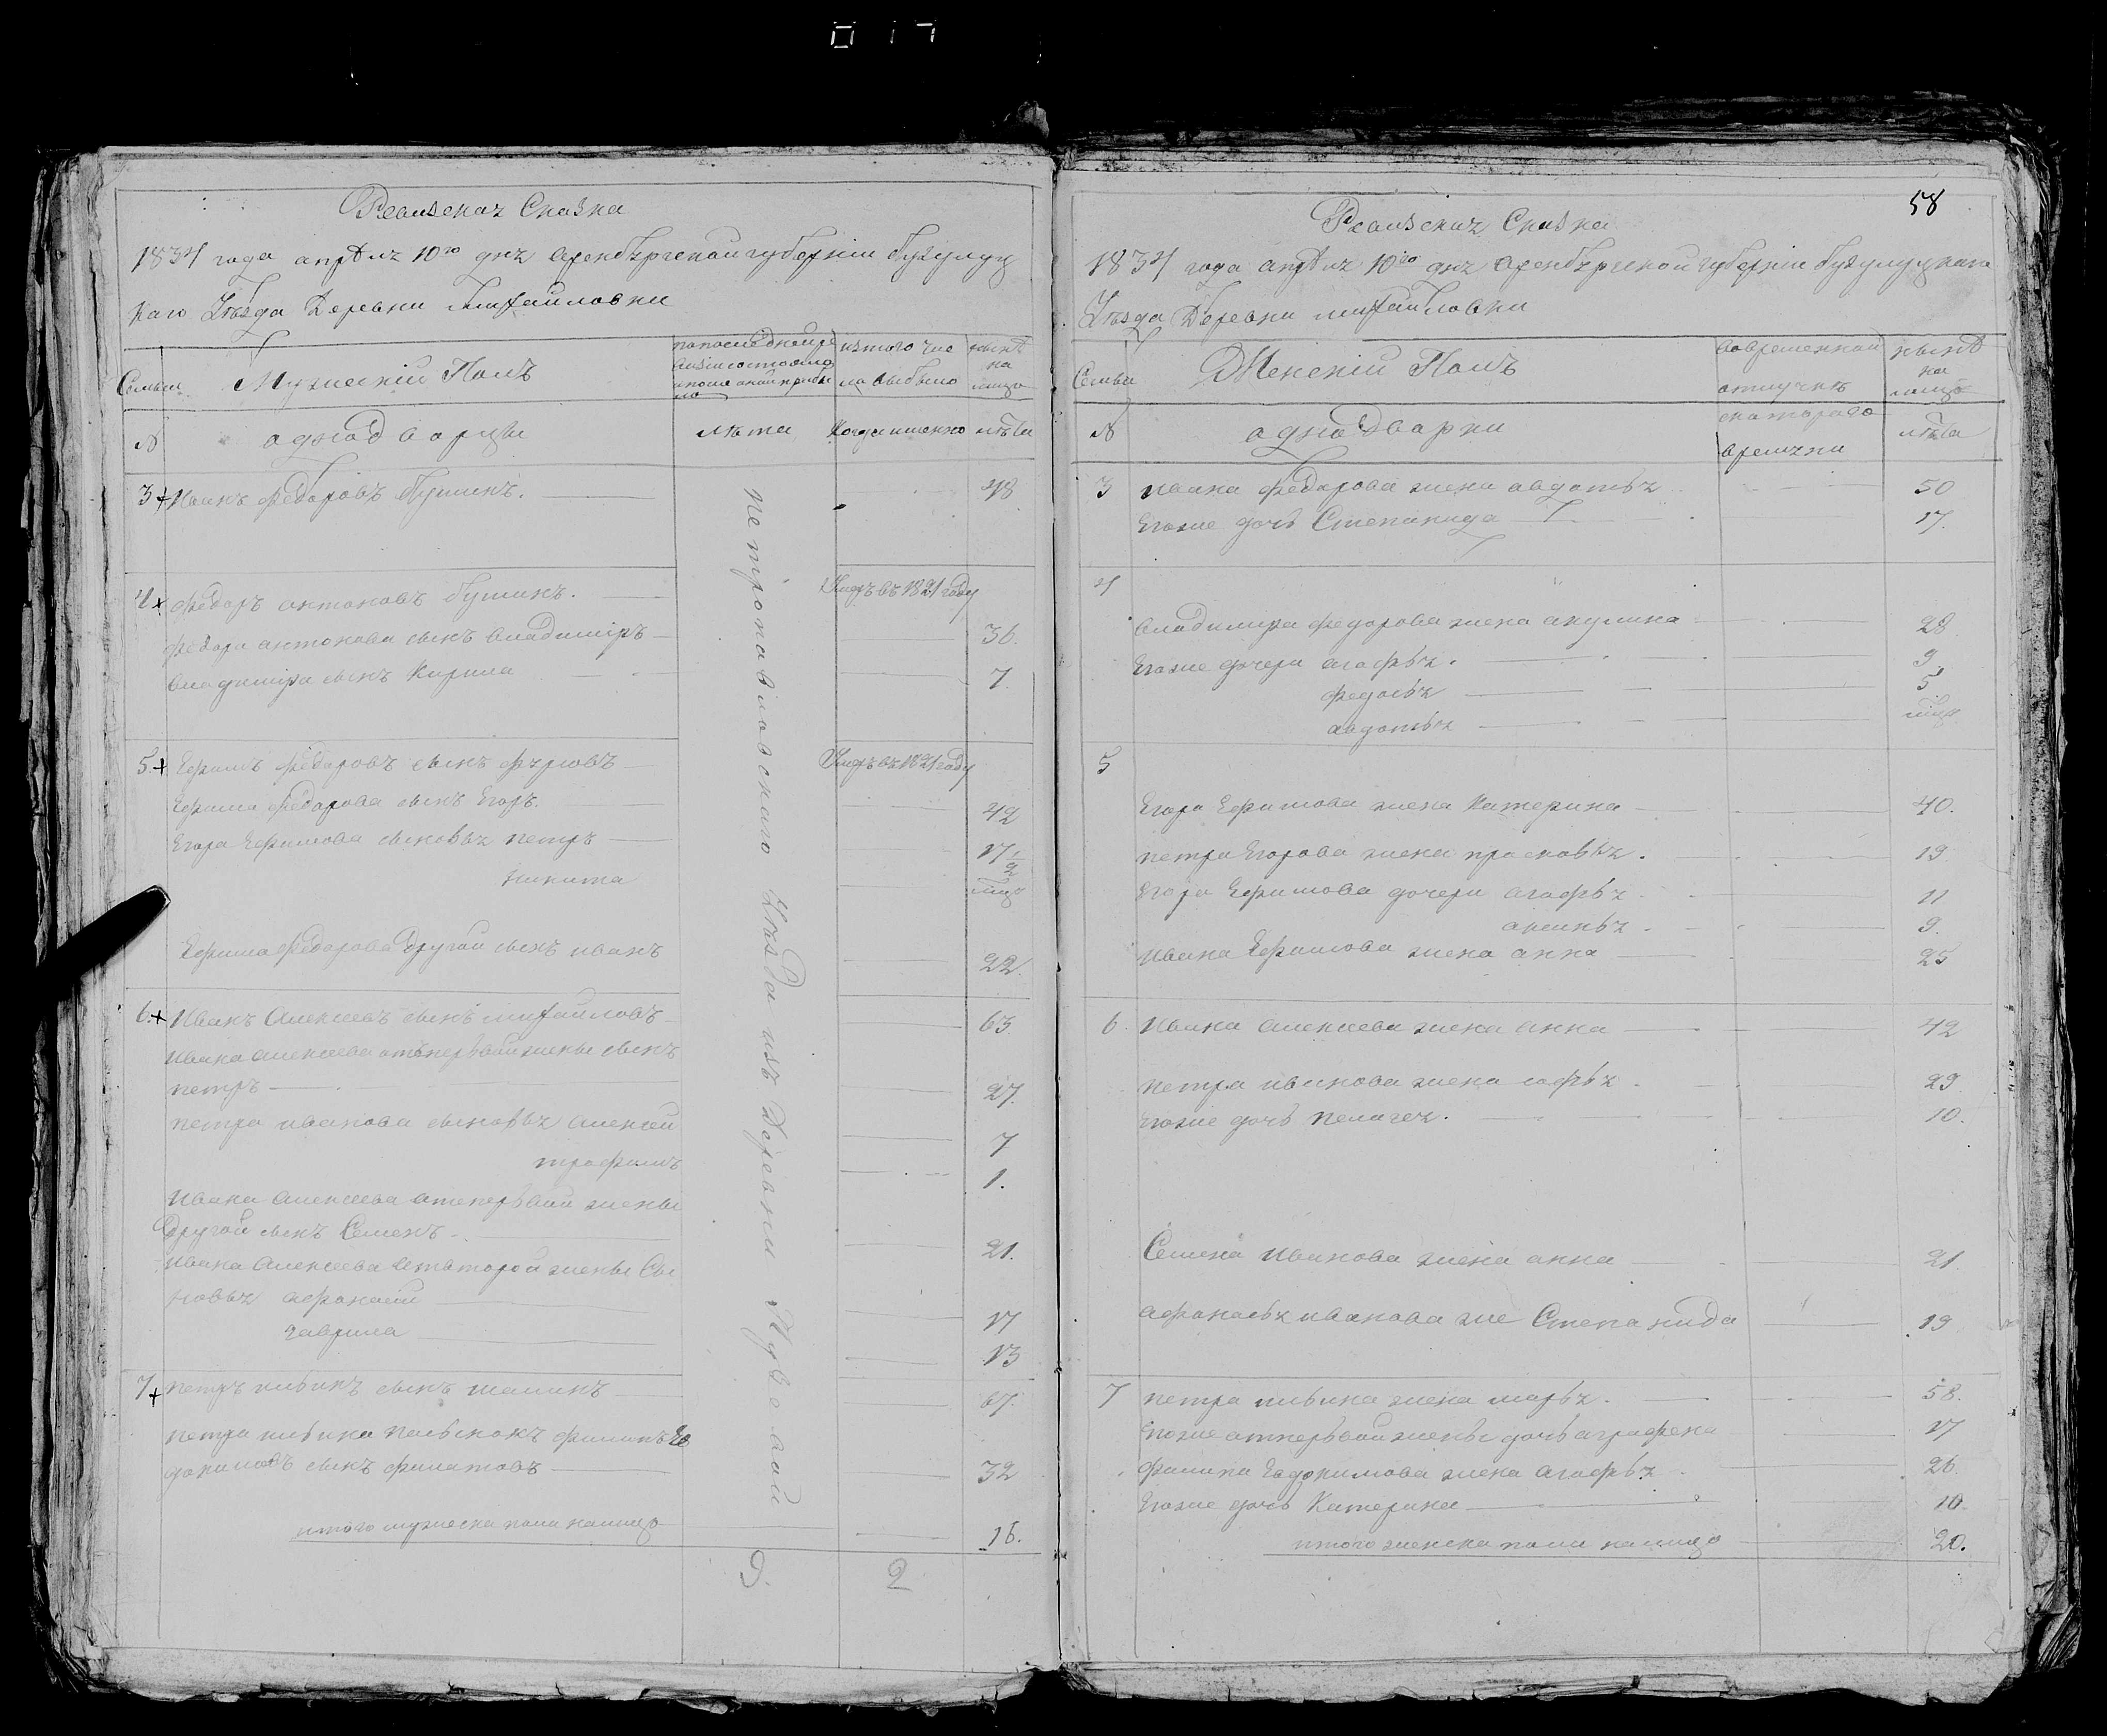 58
Ревизская Сказка
1834 года апреля 10го дня Оренбергской губернии бузулуц
каго Уезда Деревни михайловки
Семьи
Мужеский Полъ
по последней ре
визии состояло
и после оной прибы
ло
из того чис
ла выбыло
ныне
на
лицо
№
однодворцы
лета
Когда именно
лета
петропавловскаго уезда из деревни
3 Иванъ федоровъ бушинъ.
48
4 федоръ антоновъ бушинъ.
Умеръ въ 1821 году
федора антонова сынъ владимиръ
36.
владимира сынъ кирила
7
5 Ефимъ федоровъ сынъ
Умеръ въ 1821 году
Ефима федорова сынъ Егоръ.
42
Егора Ефимова сыновья петръ
17 1/2
никита
Ефима федорова другой сынъ иванъ
22.
6 Иванъ Алексеевъ сынъ михайловъ
63.
Ивана алексеева отъ первой жены сынъ
петръ
27.
петра иванова сыновья алексей
7
трофимъ
1.
Ивана алексеева от первой жены
Другой сынъ Семенъ
21.
Ивана Алексеева от второй жены Сы
новья афанасий
17
гаврила
13
7 петръ ильинъ сынъ шашинъ
67.
петра ильина пасынокъ филипъ Ев
докимовъ сынъ филатовъ
32
итого мужеска пола налицо
16.
2
Ревизская Сказка
1834 года апреля 10го дня Оренбергской губернии бузулуцкаго
Уезда Деревни михайловки
Семьи
Женский Полъ
во временной
отлучке
ныне
на
лицо
№
однодворки
с котораго
времяни
лета
3 ивана федорова жена авдотья
50
Егоже дочь Степанида
17.
4
владимира федорова жена акулина
28
Егоже дочери агафья.
9
федосья
5
авдотья
5
Егора Ефимова жена катерина
40.
петра Егорова жена прасковья.
19
Егора Ефимова дочери агафья
11
аксинья
9.
ивана Ефимова жена анна
25
6 Ивана алексеева жена анна
42
петра иванова жена софья
29
Егоже дочь пелагея.
10.
Семена иванова жена анна
21
афанасья иванова же Степанида
19
7 петра ильина жена марья.
58.
Егоже от первой жены дочь аграфена
17
филипа Евдокимова жена агафья
26.
Егоже дочь катерина
10.
итого женска пола налицо
20.